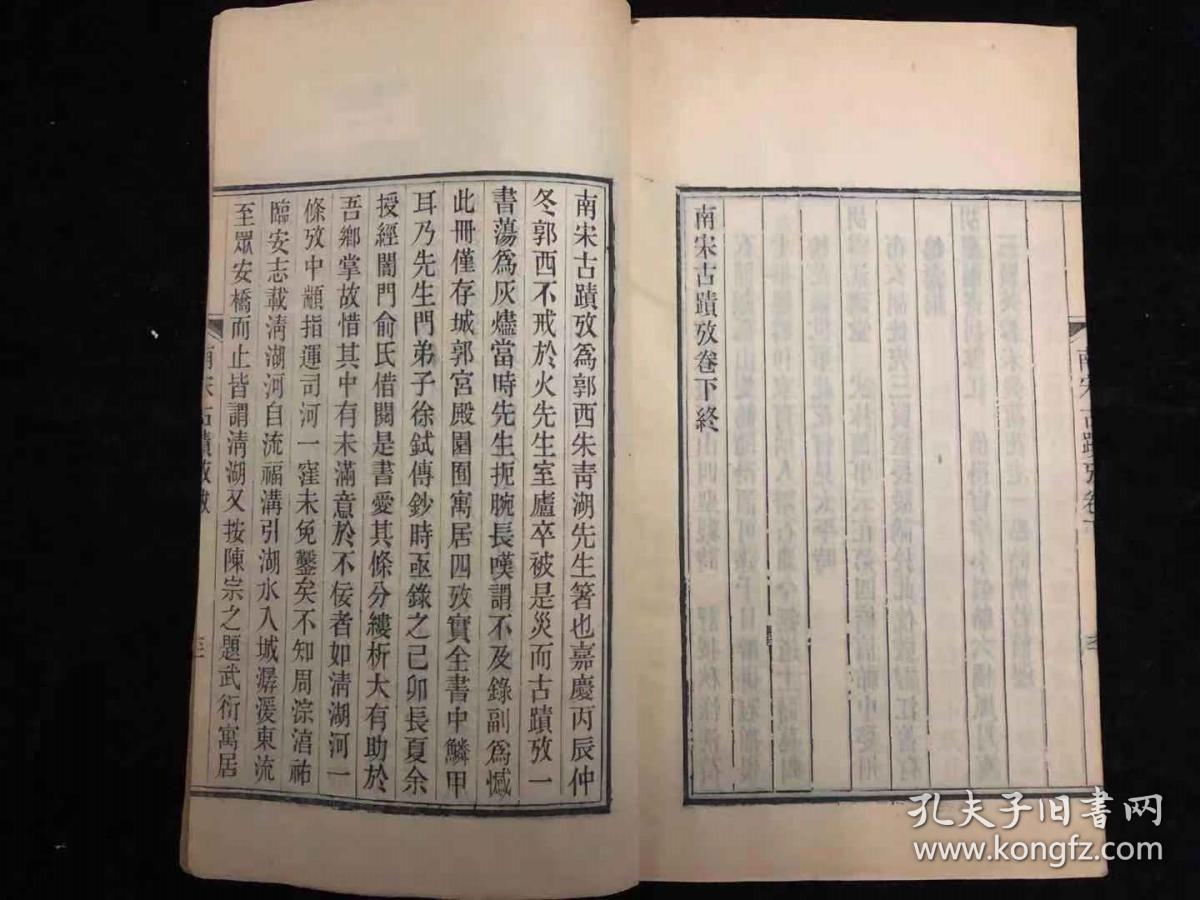 南宋古蹟攷卷下終
南宋古蹟攷卷下
南宋古蹟攷爲郭西朱靑湖先生箸也嘉慶丙辰仲
冬郭西不戒於火先生室廬卒被是災而古蹟攷一
書蕩爲灰燼當時先生扼腕長嘆謂不及錄副爲憾
此冊僅存城郭宮殿園囿寓居四攷實全書中鱗甲
耳乃先生門弟子徐鉽傳鈔時亟錄之己卯長夏余
授經闇門俞氏借閱是書愛其條分縷析大有助於
吾鄉掌故惜其中有未滿意於不佞者如淸湖河一
條攷中顓指運司河一窪未免鑿矣不知周淙濇祐
臨安志載淸湖河自流福溝引湖水入城潺湲東流
至眾安橋而止皆謂淸湖又按陳宗之題武衍寓居
南宋古蹟攷
孔夫子旧书网
www.kongfz.com